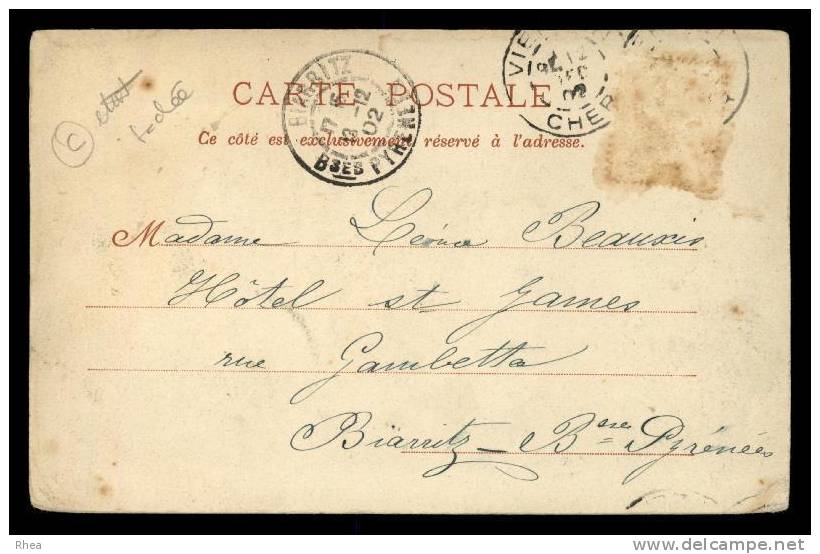 CARTE POSTALE
Ce côté est exclusivement réservé à l'adresse.
BIARRITZ
12
02
BSES PYRENEES
VIE
CHER
C
Madame Léona Beauxis
Hôtel st James
rue Gambetta
Biarritz - Bses Pyrénées
Rhea
www.delcampe.net